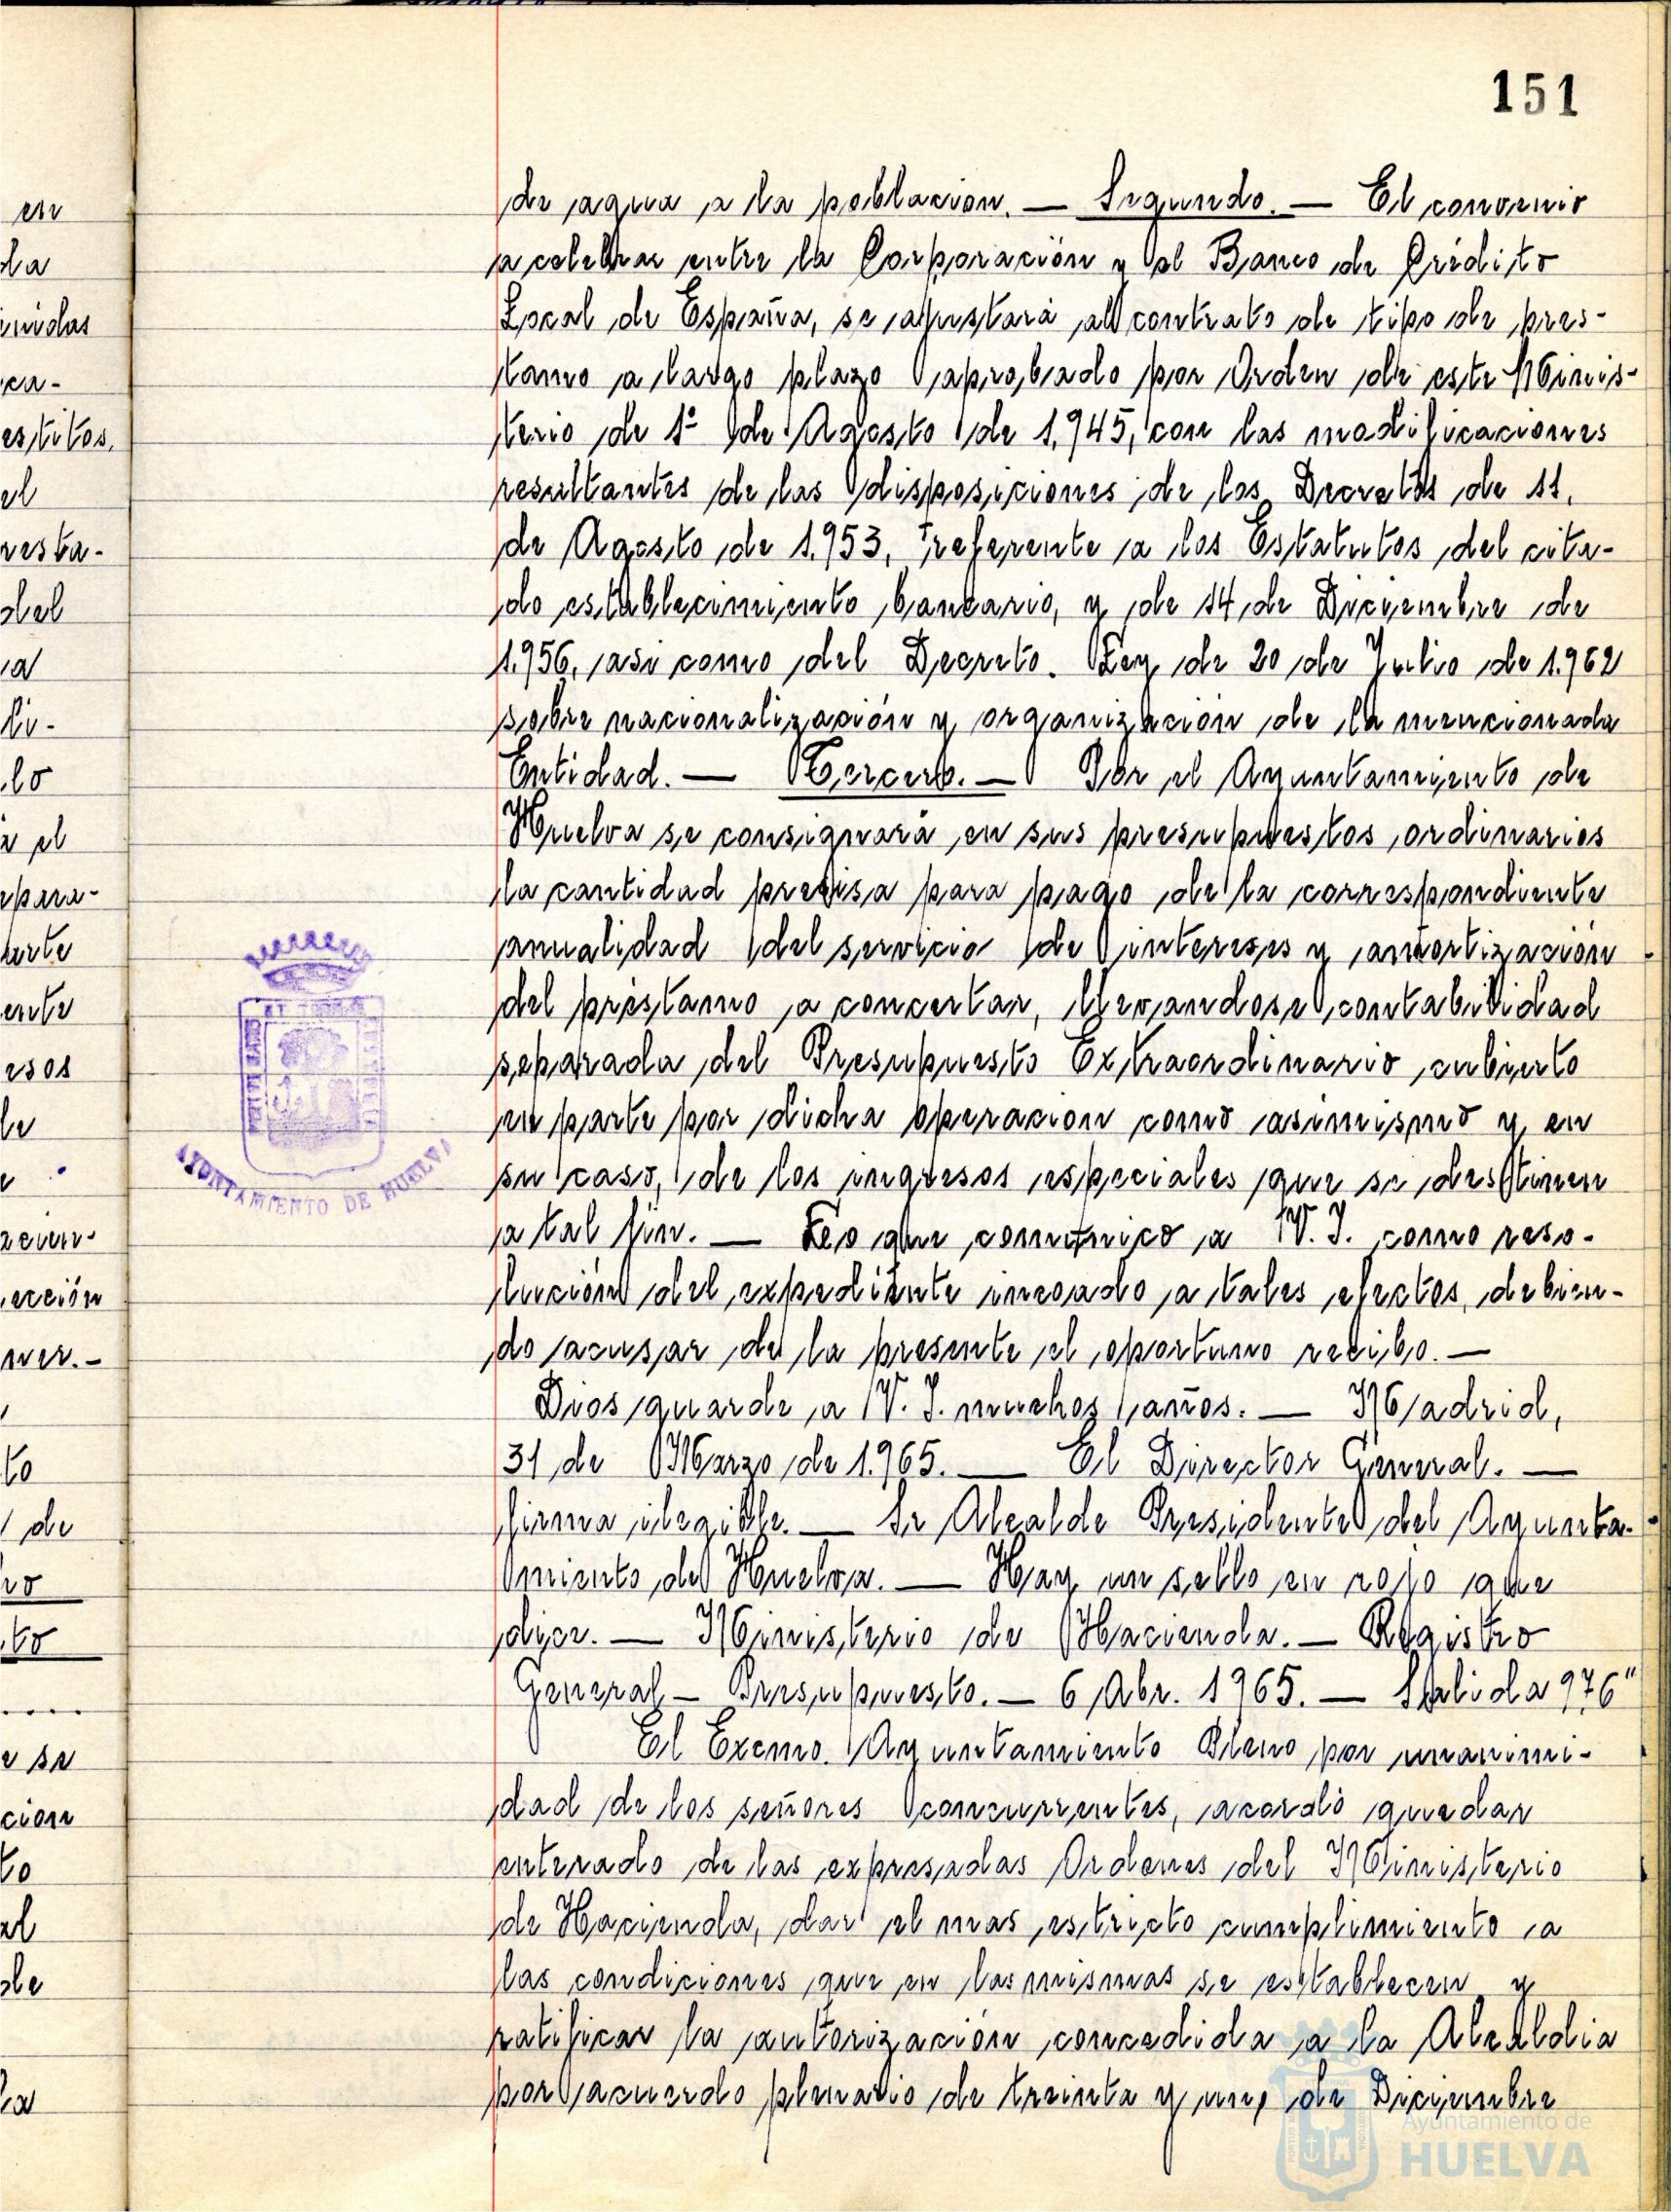 151
de agua a la poblacion. — Segundo. — El convenio
a celebrar entre la Corporación y el Banco de Crédito
Local de España, se ajustará al contrato de tipo de pres-
tamo a largo plazo aprobado por Orden de este Minis-
terio de 1º de Agosto de 1.945, con las modificaciones
resultantes de las disposiciones de los Decretos de 11,
de Agosto de 1.953, referente a los Estatutos del cita-
do establecimiento bancario, y de 14 de Diciembre de
1.956, asi como del Decreto. Ley de 20 de Julio de 1.962
sobre nacionalización y organización de la mencionada
Entidad. — Tercero. — Por el Ayuntamiento de
Huelva se consignará en sus presupuestos ordinarios
la cantidad precisa para pago de la correspondiente
anualidad del servicio de intereses y amortización
del préstamo a concertar, llevandose contabilidad
separada del Presupuesto Extraordinario cubierto
en parte por dicha operacion como asimismo y en
su caso, de los ingresos especiales que se destinen
a tal fin. — Lo que comunico a V. I. como reso-
lución del expediente incoado a tales efectos, debien-
do acusar de la presente el oportuno recibo. —
Dios guarde a V. I. muchos años. — Madrid,
31 de Marzo de 1.965. — El Director General. —
firma ilegible. — Sr Alcalde Presidente del Ayunta-
miento de Huelva. — Hay un sello en rojo que
dice. — Ministerio de Hacienda. — Registro
General — Presupuesto. — 6 Abr. 1965. — Salida 976"
El Excmo. Ayuntamiento Pleno por unanimi-
dad de los señores concurrentes, acordó quedar
enterado de las expresadas Ordenes del Ministerio
de Hacienda, dar el mas estricto cumplimiento a
las condiciones que en las mismas se establecen y
ratificar la autorización concedida a la Alcaldia
por acuerdo plenario de treinta y uno de Diciembre
AYUNTAMIENTO DE HUELVA
Ayuntamiento de
HUELVA
en
la
ca-
estitos,
el
resta-
del
a
li-
lo
a el
para-
arte
ente
esos
le
ección
to
de
to
e se
cion
to
al
de
la